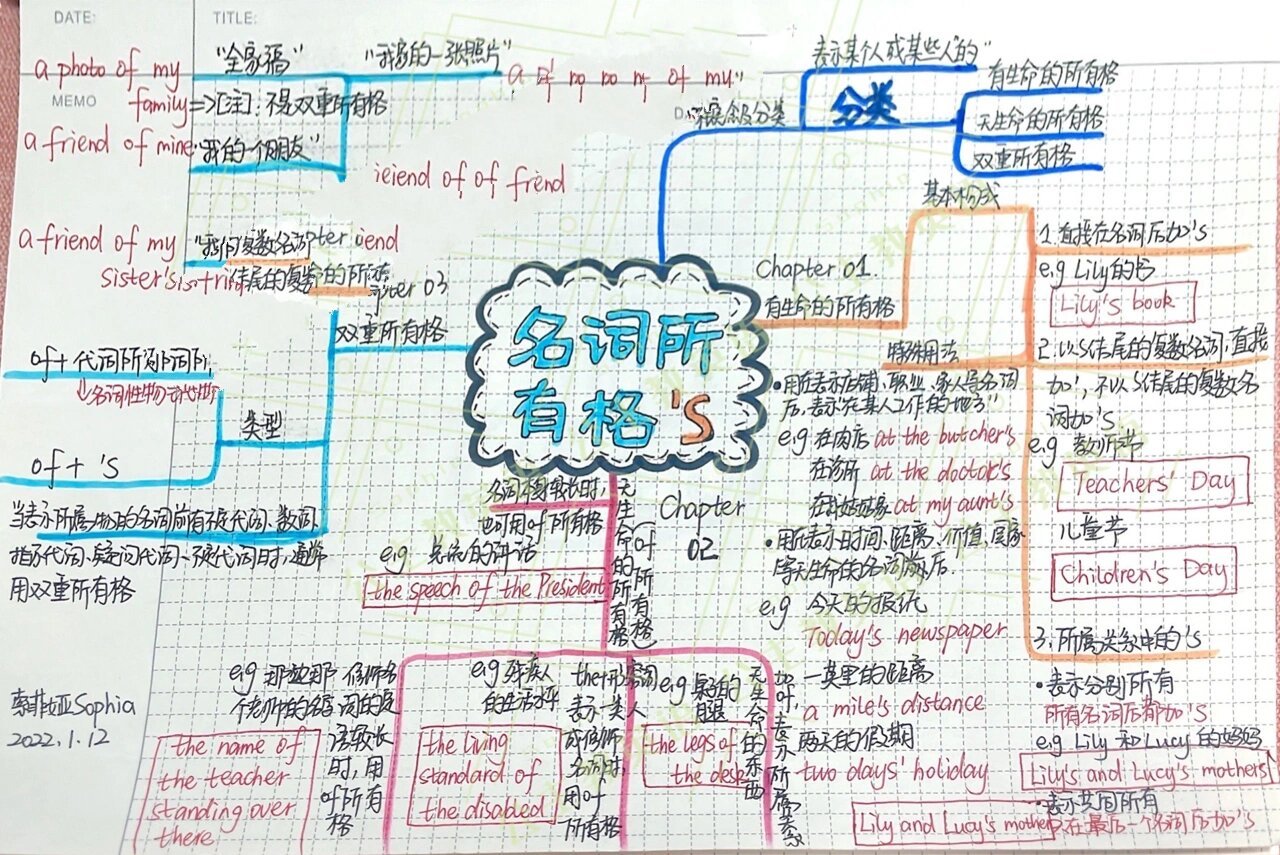 DATE:
TITLE:
MEMO
a photo of my
family
"全家福"
"我家的一张照片"
=>[注]:不是双重所有格
a friend of mine
"我的一个朋友"
a friend of my
sister's
双重所有格
of+
名词性物主代词
类型
of+'s
当表示所属物的名词前有不定代词、数词
指示代词、疑问代词、不定代词时,通常
用双重所有格
索菲娅Sophia
2022.1.12
名词所
有格's
表示某个人或某些人"的"
分类
有生命的所有格
无生命的所有格
双重所有格
Chapter 01.
有生命的所有格
基本构成
1.直接在名词后加's
e.g Lily的书
Lily's book
2.以s结尾的复数名词,直接
加',不以s结尾的复数名
词加's
e.g 教师节
Teachers' Day
儿童节
Children's Day
3.所属关系中的's
·表示分别所有
所有名词后都加's
e.g Lily和Lucy的妈妈
Lily's and Lucy's mothers
·表示共同所有
只在最后一个名词后加's
Lily and Lucy's mother
特殊用法
·用所表示店铺、职业、家人等名词
后,表示"在某人工作的地方"
e.g 在肉店 at the butcher's
在诊所 at the doctor's
at my aunt's
·用所表示时间、距离、价值、国家
等无生命的名词前后.
e.g 今天的报纸
Today's newspaper
一英里的距离
a mile's distance
两天的假期
two days' holiday
Chapter
02
无生命的所有格
(of所有格)
名词 较长时,
也可用of所有格
e.g 总统的讲话
the speech of the President
e.g
个老师的名字
the name of
the teacher
standing over
there
语较长
时,用
of所有
格
e.g 残疾人
的生活水平
the living
standard of
the disabled
the+形容词
表示一类人
或修饰
名词时,
用of
所有格
e.g 桌子的
腿
the legs of
the desk
无生命的东西